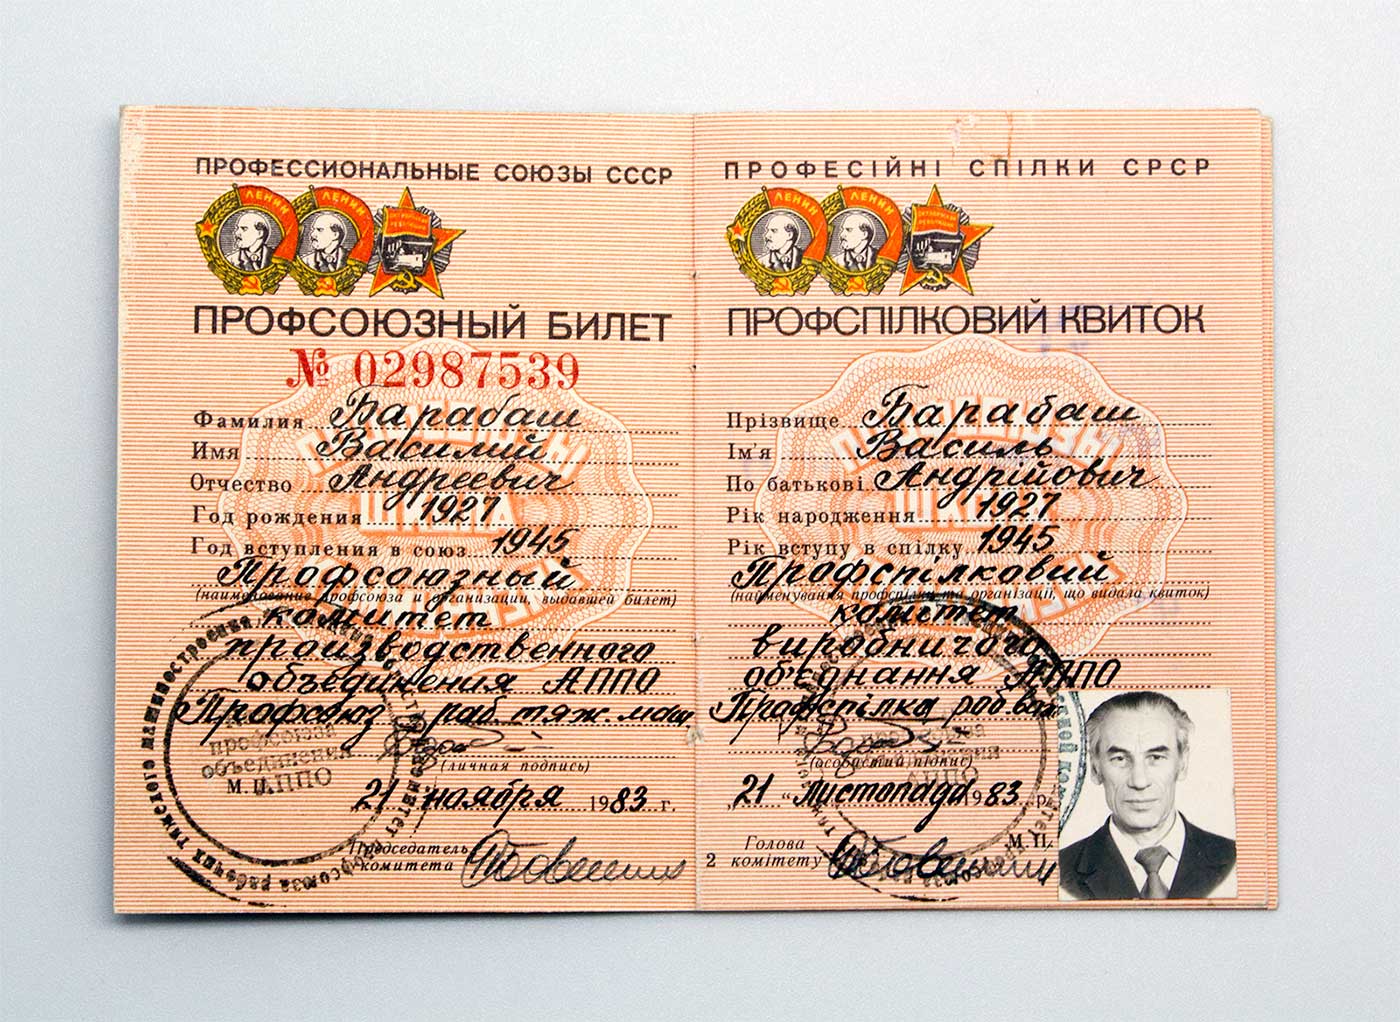 ПРОФЕССИОНАЛЬНЫЕ СОЮЗЫ СССР
ЛЕНИН ЛЕНИН ОКТЯБРЬСКАЯ РЕВОЛЮЦИЯ
ПРОФСОЮЗНЫЙ БИЛЕТ
№ 02987539
Фамилия Барабаш
Имя Василий
Отчество Андреевич
Год рождения 1927
Год вступления в союз 1945
Профсоюзный
(наименование профсоюза и организации, выдавшей билет)
комитет
производственного
объединения АППО
Профсоюз раб. тяж. маш
(личная подпись)
профсоюза
объединения
М.П. АППО
21 ноября 1983 г.
Председатель
комитета
ПРОФЕСІЙНІ СПІЛКИ СРСР
ЛЕНИН ЛЕНИН ОКТЯБРЬСКАЯ РЕВОЛЮЦИЯ
ПРОФСПІЛКОВИЙ КВИТОК
Прізвище Барабаш
Ім'я Василь
По батькові Андрійович
Рік народження 1927
Рік вступу в спілку 1945
Профспілковий
(найменування профспілки та організації, що видала квиток)
комітет
виробничого
об'єднання АППО
Профспілка роб.
(особистий підпис)
АППО
„21“ листопада 1983 р.
М.П.
Голова
2 комітету